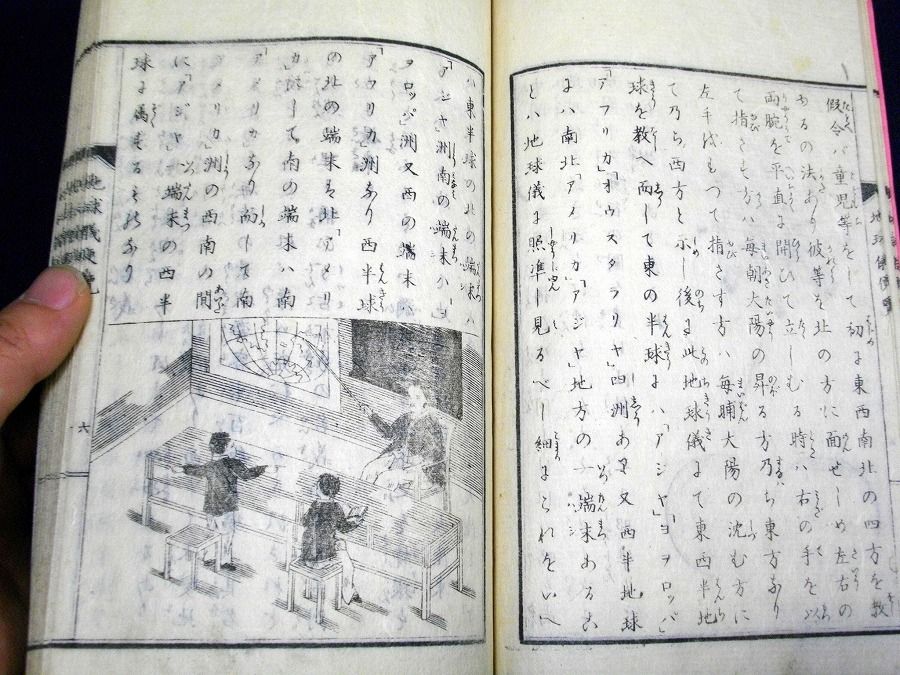 假令バ童児等をして初に東西南北の四方を教
ゆるの法あり彼等を北の方に面せしめ左右の
両腕を平直に開ひて立しむる時ハ右の手を以
て指さす方ハ毎朝大陽の昇る方乃ち東方なり
左手をもつて指さす方ハ毎晡大陽の沈む方に
て乃ち西方と示し後に此地球儀にて東西半地
球を教へ而して東の半球にハ「アジヤ」「ヨヲロッパ」
「アフリカ」「オウスタラリヤ」四洲あり又西半地球
にハ南北「アメリカ」「アジヤ」地方の一端末あるこ
とハ地球儀に照準し見るべし細にこれをいへ
ハ東半球の北の端末ハ
「アジヤ」洲南の端末ハ「ヨ
ヲロッパ」洲又西の端末
「アフリカ」洲なり西半球
の北の端末ハ北「アメリ
カ」にして南の端末ハ南
「アメリカ」なり而して南
「アメリカ」洲の西南の間
に「アジヤ」一端末の西半
球に属するものなり
六